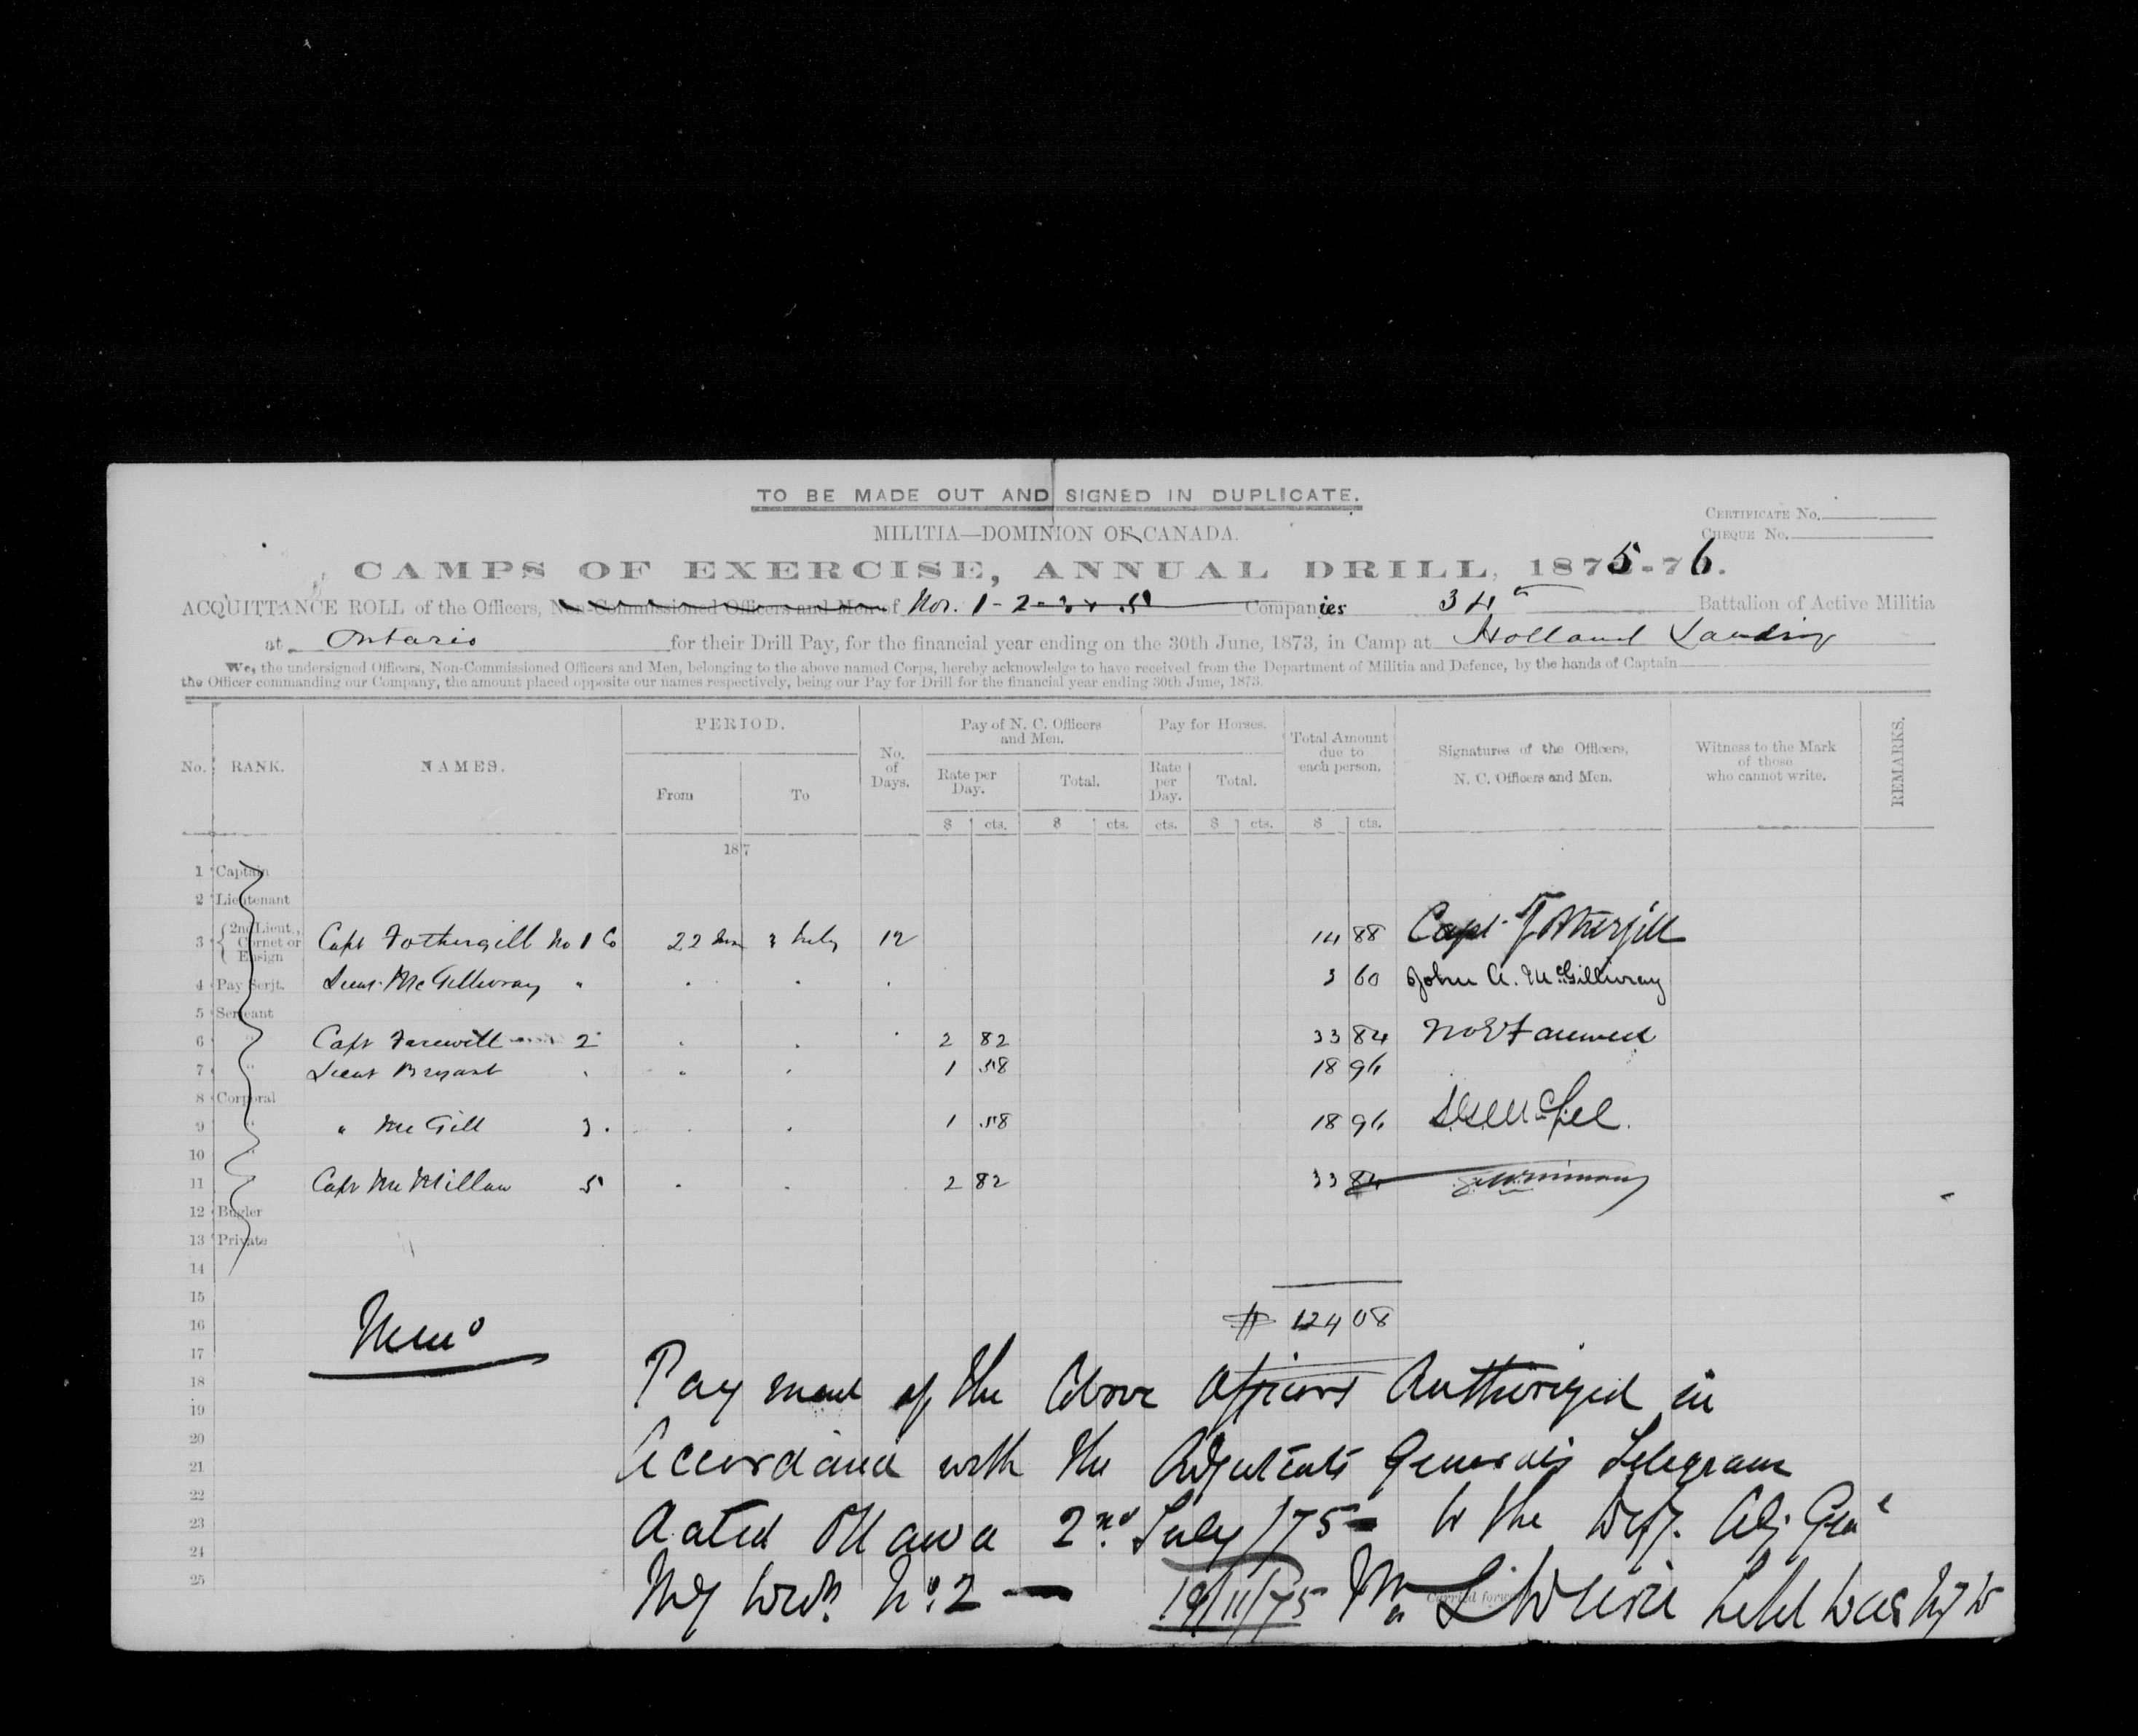 TO BE MADE OUT AND SIGNED IN DUPLICATE.
MILITIA—DOMINION OF CANADA.
CERTIFICATE No.
CHEQUE No.
CAMPS OF EXERCISE, ANNUAL DRILL, 1875-76.
ACQUITTANCE ROLL of the Officers, Non-Commissioned Officers and Men of Nos. 1-2-3 & 5 Companies 34th Battalion of Active Militia
at Ontario for their Drill Pay, for the financial year ending on the 30th June, 1873, in Camp at Holland Landing
We, the undersigned Officers, Non-Commissioned Officers and Men, belonging to the above named Corps, hereby acknowledge to have received from the Department of Militia and Defence, by the hands of Captain
the Officer commanding our Company, the amount placed opposite our names respectively, being our Pay for Drill for the financial year ending 30th June, 1873.
No. RANK. NAMES. PERIOD. From To No. of Days. Pay of N. C. Officers and Men. Rate per Day. Total. Pay for Horses. Rate per Day. Total. Total Amount due to each person. Signatures of the Officers, N. C. Officers and Men. Witness to the Mark of those who cannot write. REMARKS.
$ cts. $ cts. cts. $ cts. $ cts.
187
1 Captain
2 Lieutenant
3 2nd Lieut., Cornet or Ensign Capt Fothergill No 1 Co 22 June 3 July 12 14 88 Capt Fothergill
4 Pay Serjt. Lieut McGillivray " " " " 3 60 John A. McGillivray
5 Sergeant
6 " Capt Farewell 2 " " " 2 82 33 84 Farewell
7 " Lieut Bryant " " " 1 58 18 96
8 Corporal
9 " " McGill 3 " " 1 58 18 96 McGill.
10 "
11 " Capt McMillan 5 " " 2 82 33 84
12 Bugler
13 Private
14
15
16 $ 124 08
Memo
17
18 Payment of the above Officers Authorized in
19
20
21 Accordance with the Adjutants Generals Telegram
22
23 dated Ottawa 2nd July /75 - to the Depy. Adj. Genl
24
25 My Divn. No. 2 — 19/11/75
Carried forward